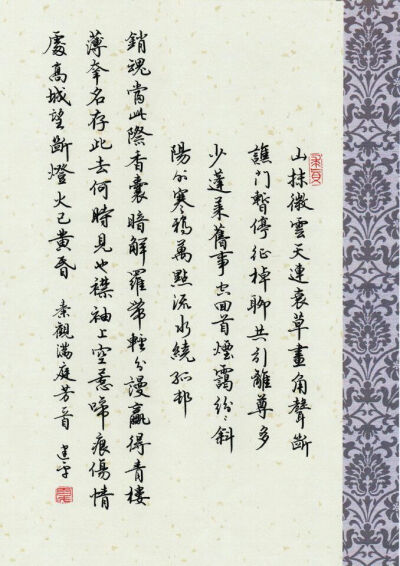 山抹微雲天連衰草畫角聲斷
譙門暫停征棹聊共引離尊多
少蓬萊舊事空回首煙靄紛〻斜
陽外寒鴉萬點流水繞孤村
銷魂當此際香囊暗解羅帶輕分謾贏得青樓
薄幸名存此去何時見也襟袖上空惹啼痕傷情
處高城望斷燈火已黃昏 秦觀滿庭芳首 建平